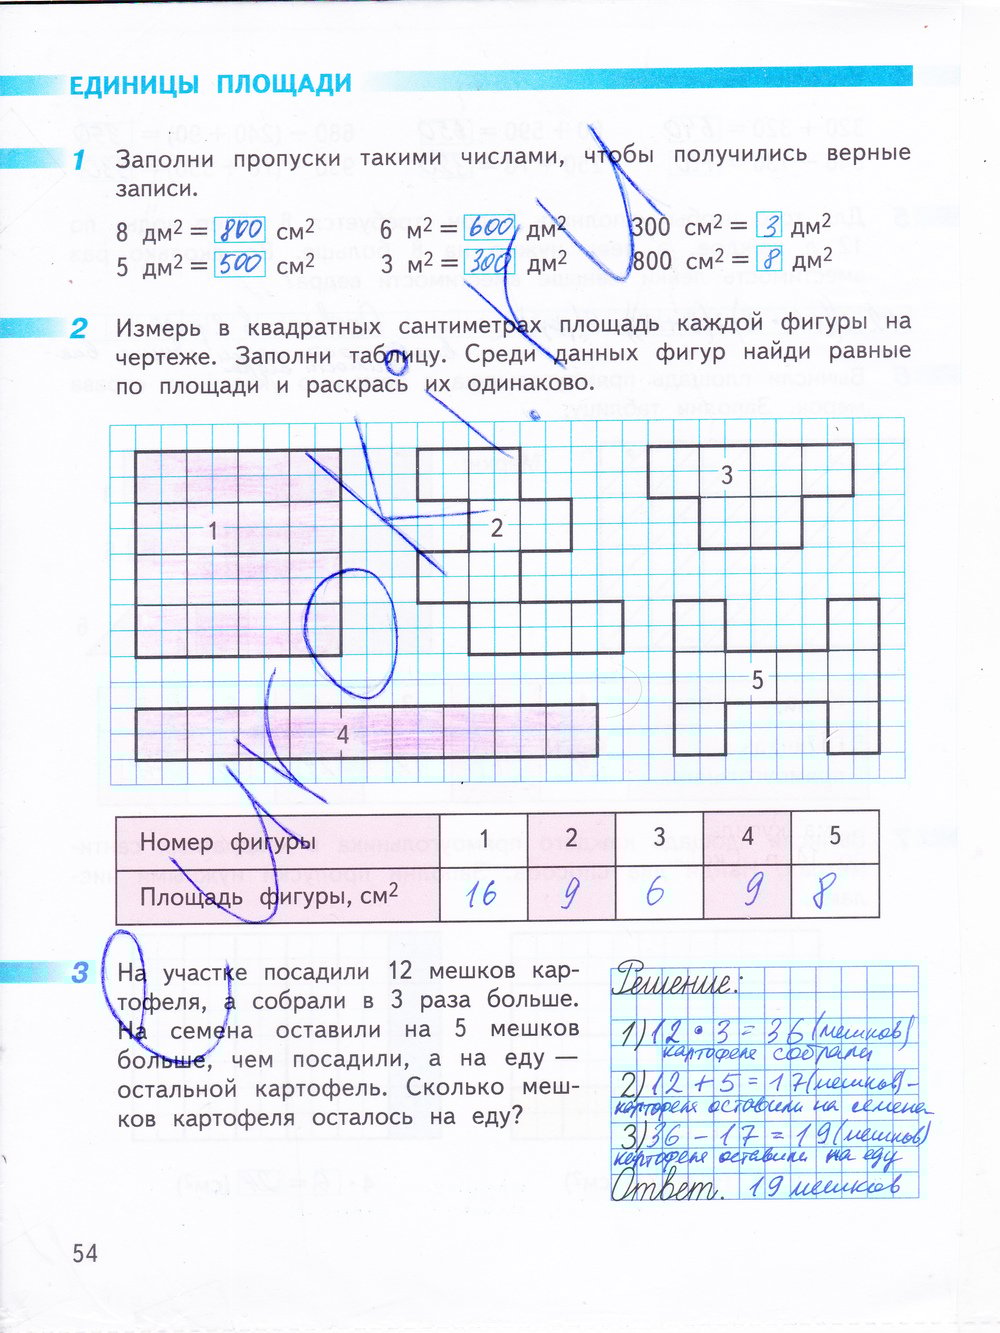 ЕДИНИЦЫ ПЛОЩАДИ
1 Заполни пропуски такими числами, чтобы получились верные
записи.
8 дм² = 800 см² 6 м² = 600 дм² 300 см² = 3 дм²
5 дм² = 500 см² 3 м² = 300 дм² 800 см² = 8 дм²
2 Измерь в квадратных сантиметрах площадь каждой фигуры на
чертеже. Заполни таблицу. Среди данных фигур найди равные
по площади и раскрась их одинаково.
1
2
3
4
5
Номер фигуры 1 2 3 4 5
Площадь фигуры, см² 16 9 6 9 8
3 На участке посадили 12 мешков кар-
тофеля, а собрали в 3 раза больше.
На семена оставили на 5 мешков
больше, чем посадили, а на еду —
остальной картофель. Сколько меш-
ков картофеля осталось на еду?
Решение:
1) 12 • 3 = 36 (мешков)
картофеля собрали
2) 12 + 5 = 17 (мешков) -
картофеля оставили на семена
3) 36 - 17 = 19 (мешков)
картофеля оставили на еду
Ответ. 19 мешков
54